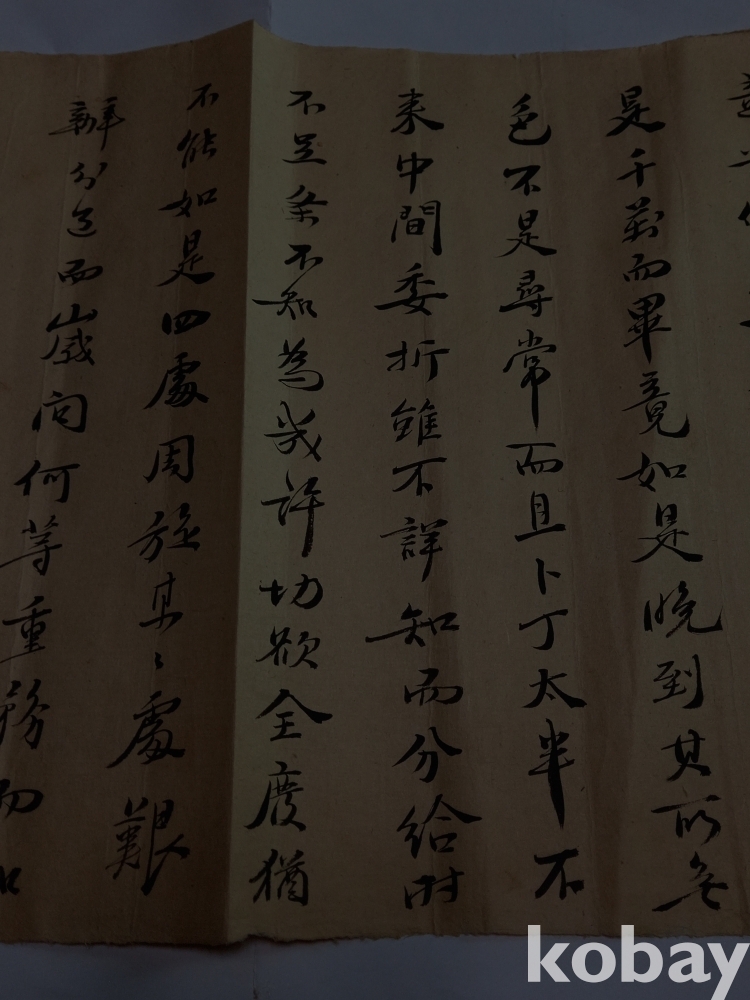 是千萬而畢竟如是晚到其所無
色不是尋常而且卜丁太半不
來中間委折雖不詳知而分給時
不足条不知為幾許切欲全度猶
不能如是四處周旋某〻處艱
辦分送而歲问何等重務而
kobay